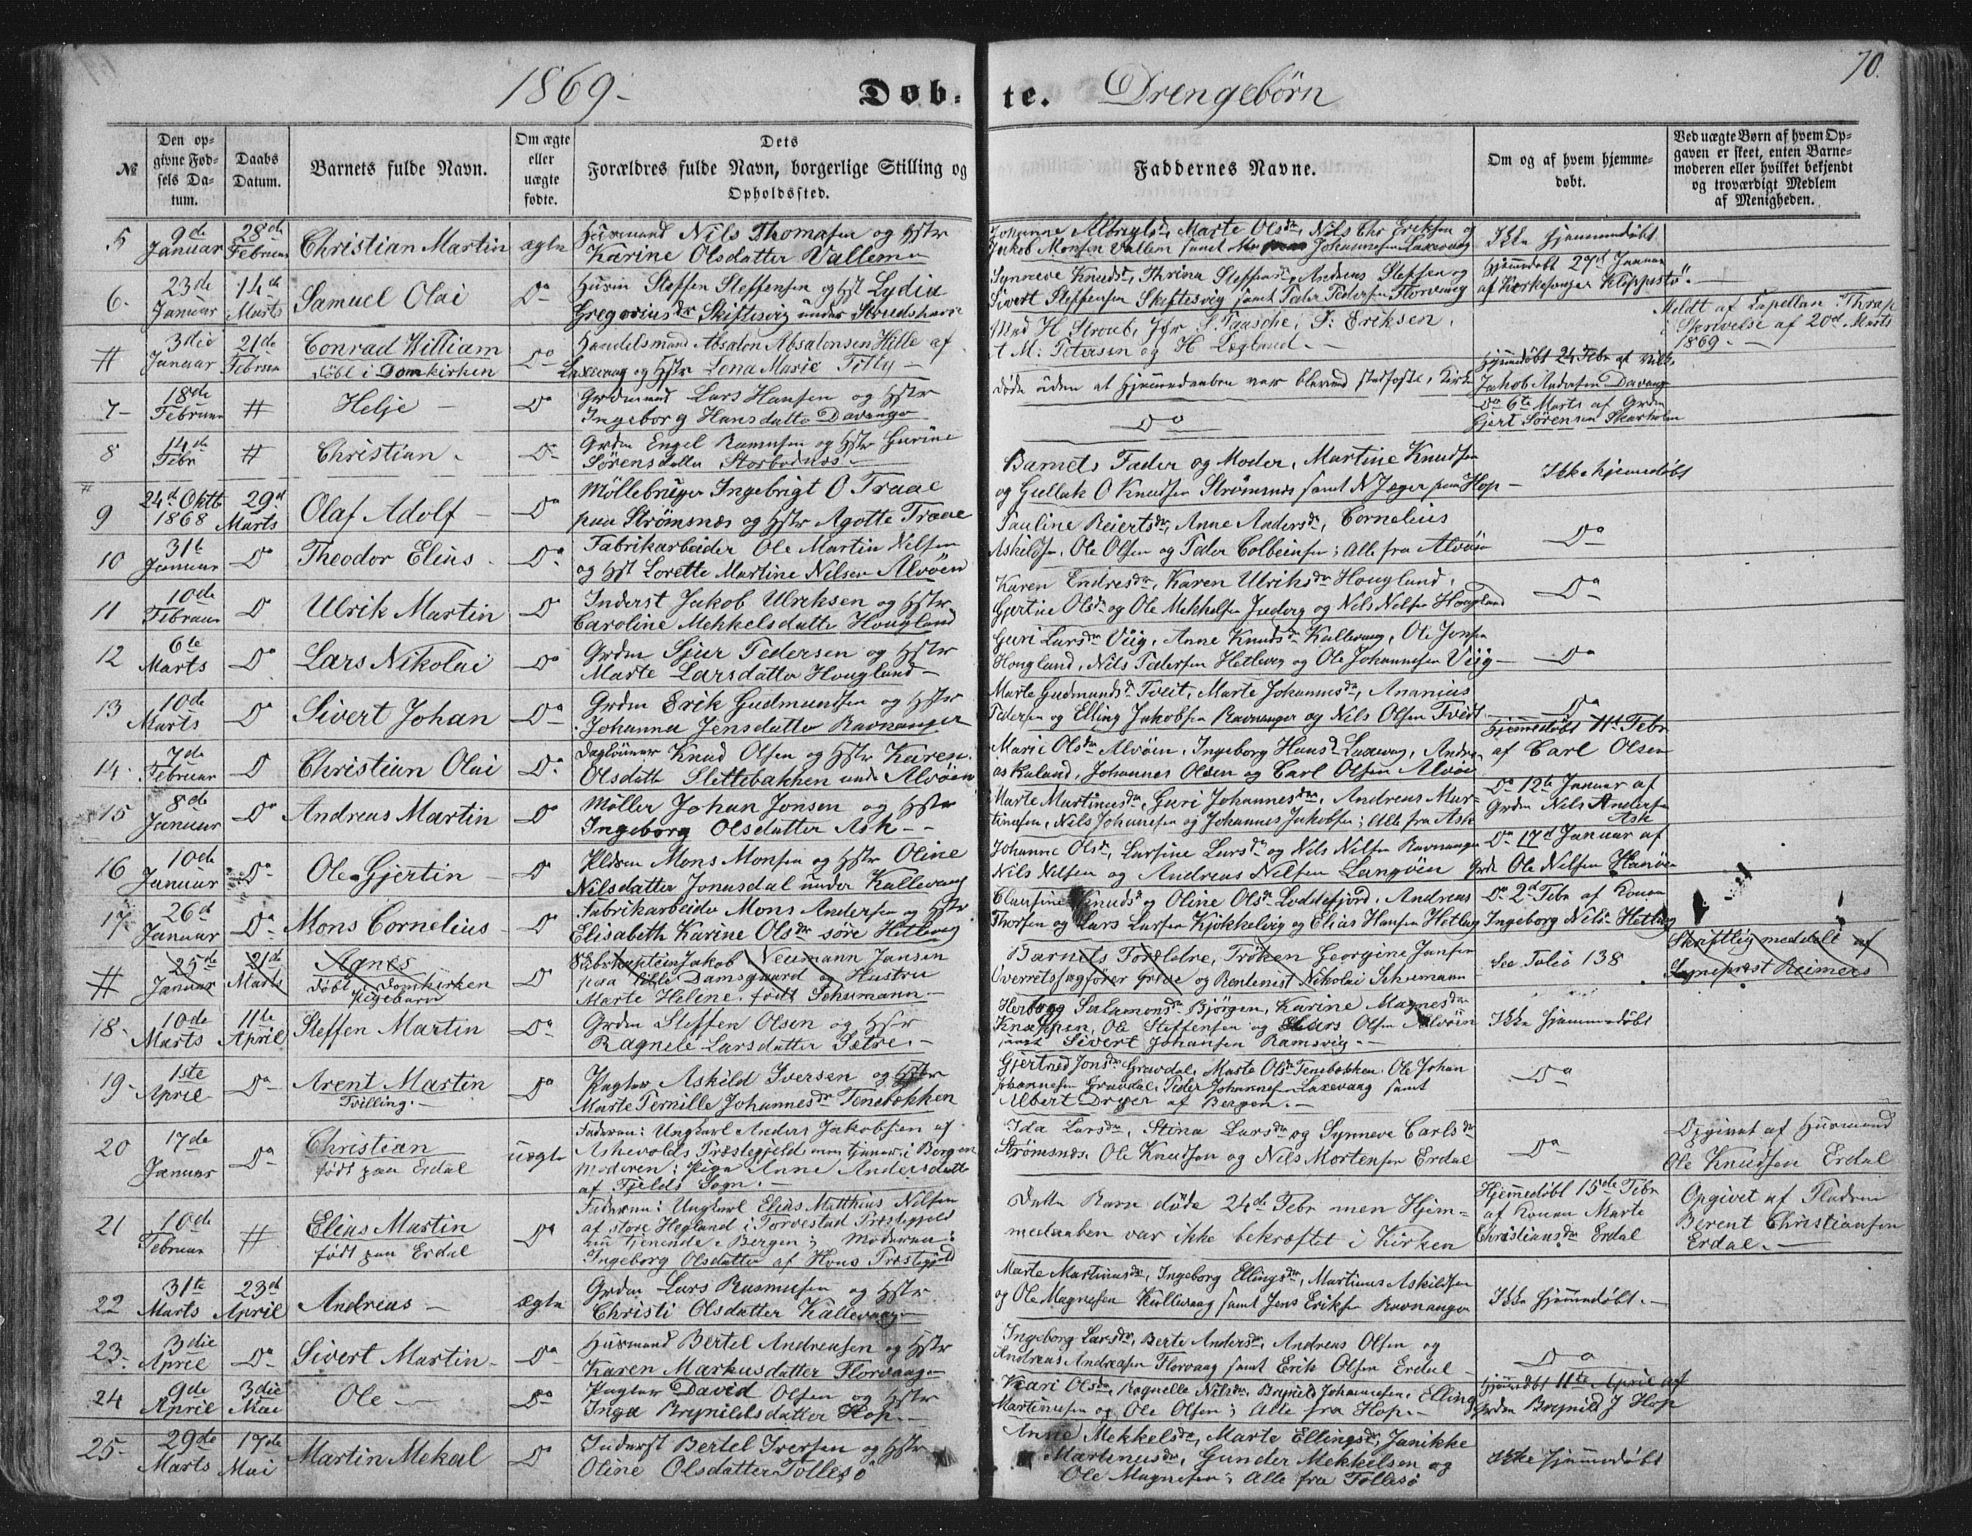 70.
1869 -
Døb- te.
Drengebørn
№
Den op-
givne Fød-
sels Da-
tum.
Daabs
Datum.
Barnets fulde Navn.
Om ægte
eller
uægte
fødte.
Dets
Forældres fulde Navn, borgerlige Stilling og
Opholdssted.
Faddernes Navne.
Om og af hvem hjemme-
døbt.
Ved uægte Børn af hvem Op-
gaven er skeet, enten Barne-
moderen eller hvilket bekjendt
og troværdigt Medlem
af Menigheden.
5
9de
Januar
28de
Februar
Christian Martin
ægte
Huusmand Nils Thomasen og Hstr
Karine Olsdatter Vallem
Johanne Albregtsdr, Marte Olsdr, Nils Chr Eriksen og
Jakob Monsen Vallem samt Johannesen Laxevaag
Ikke hjemmedøbt
6.
23de
Januar
14de
Marts
Samuel Olai
Do
Steffen Steffensen og Hst Lydia
Gregoriusdr Skiftesvig under Strudshavn
Synneve Knudsdr, Thrina Steffensdr, Andreas Steffsen og
Sivert Steffensen Skiftesvig samt Peder Pedersen Florvaag
Hjemmedøbt 27d Januar
af Kirkesanger Klippestø
#
3die
Januar
21de
Februar
Conrad William
døbt i Domkirken
Do
Handelsmand Absalon Absalonsen Hille af
Laxevaag og Hstr Lena Marie Filly -
Mad H Stroub, Jfr S. Paasche, S: Eriksen,
A M: Petersen og H Lægland. -
Meldt af Capellan Thrap
i Skrivelse af 20d Marts
1869 -
7-
18de
Februar
#
Helje -
Do
Grdmand Lars Hansen og Hstr
Ingeborg Hansdatter Davanger
Døde uden at Hjemmedaaben var blevend stadfæstet i Kirken
Hjemmedøbt 24 Febr af
Jakob Andersen Davanger
8
14de
Febr
#
Christian -
Do
Grdm Engel Rasmusen og Hstr Gurine
Sørensdatter Storbodnes -
Do
Do 6te Marts af Grdm
Gjert Sørensen Skarholm
9
24d Oktb
1868
29d
Marts
Olaf Adolf -
Do
Møllebruger Ingebrigt O Traae
paa Strømsnæs og Hstr Agotte Traae
Barnets Fader og Moder, Martine Knudsen
og Gullak O Knudsen Strømsnæs samt N Jæger paa Hop -
Ikke hjemedøbt
10
31te
Januar
Do
Theodor Elius -
Do
Fabrikarbeider Ole Martin Nilsen
og Hst Lorette Martine Nilsen Alvøen
Pauline Reiertsdr, Anne Andersdr, Cornelius
Askildsen, Ole Olsen og Peder Colbeinsen; Alle fra Alvøen
Do
11
10de
Februar
Do
Ulrik Martin
Do
Inderst Jakob Ulriksen og Hstr
Caroline Mekkelsdatter Hougland
Karen Endresdr, Karen Ulriksdr Hougland,
Gurtine Olsdr og Ole Mekkelsen Juderg og Nils Nelsen Hougland
Do
12
6te
Marts
Do
Lars Nikolai
Do
Grdm Sjur Pedersen og Hstr
Marte Larsdatter Hougland -
Guri Larsdr Viig, Anne Knudsdr Kallevaag, Ole Jonsen
Hougland, Nils Pedersen Hetlevig og Ole Johannesen Viig -
Do
13
10de
Marts
Do
Sivert Johan
Do
Grdm Erik Gudmundsen og Hstr
Johanna Jensdatter Ravnanger
Marte Gudmundsdr Tveit, Marte Johannesdr, Ananias
Pedersen og Elling Jakobsen Ravnanger og Nils Olsen Tveit.
Do
14-
7de
Februar
Do
Christian Olai
Do
Dagløner Knud Olsen og Hstr Karen
Olsdatter Slettebakken under Alvøen
Marie Olsdr Alvøen, Ingeborg Hansdr Laxevaag, Andre-
as Kuland, Johannes Olsen og Carl Olsen Alvøen
Hjemmedøbt 11te Febr
af Carl Olsen
15
8de
Januar
Do
Andreas Martin
Do
Møller Johan Jonsen og Hstr
Ingeborg Olsdatter Ask -
Marte Martinusdr, Guri Johannesdr, Andreas Mar-
tinesen, Nils Johannesen og Johannes Jakobsen; Alle fra Ask
Do 12te Januar af
Grdm Nils Andersen
Ask
16
10de
Januar
Do
Ole Gjertin -
Do
Pldsm Mons Monsen og Hstr Oline
Nilsdatter Jonasdal under Kallevaag
Johanne Olsdr, Larsine Larsdr og Nils Nilsen Ravnanger
Nils Nilsen og Andreas Nilsen Langøen
Do 17d Januar af
Grdm Ole Nilsen Hanøen
17
26d
Januar
Do
Mons Cornelius -
Do
Fabrikarbeider Mons Andersen og Hstr
Elisabeth Karine Olsdr søre Hetlevig
Claussine Knudsdr og Oline Olsdr Loddefjord, Andreas
Thorsen og Lars Larsen Kjøkkelvig og Elias Hansen Hetlevig
Do 2d Febr af Konen
Ingeborg Nilsdr Hetlevig
#
25de
Januar
21de
Marts
Agnes
døbt i Domkirken
Pigebarn
Do
Skibskaptein Jakob Neumann Jansen
paa lille Damsgaard og Hustru
Marte Helene født Schumann. -
Barnets Forældre, Frøken Georgine Jansen
Overretssagfører Grieve og Rentenist Nikolai Schumann
See Folio 138
Skriftlig meddelt af
Sognepræst Reimers
18-
10de
Marts
11te
April
Steffen Martin
Do
Grdm Steffen Olsen og Hstr
Ragnele Larsdatter Sætre. -
Herborg Salamonsdr Bjørgen, Karine Magnesdr
Knappen, Ole Steffensen og Lars Olsen Alvøen
samt Sivert Johansen Ramsvig. -
Ikke hjemmedøbt
19-
1ste
April
Do
Arent Martin
Tvilling.
Do
Pagter Askild Iversen og Hstr
Marte Pernille Johannesdr Tenebækken
Gjertrud Jonsdr Gravdal, Marte Olsdr Tenebækken, Ole Johan
Johannesen Gravdal, Peder Johannesen Laxevaag samt
Albert Dreyer af Bergen. -
Do
20
17de
Januar
Do
Christian
født paa Erdal
uægte
Faderen: Ungkarl Anders Jakobsen af
Askevolds Præstegjeld men tjener i Bergen
Moderen: Pige Anne Andersdatter
af Fjelds Sogn. -
Ida Larsdr, Stina Larsdr og Synneve Carlsdr
Strømsnæs. Ole Knudsen og Nils Mortensen Erdal
Do
Opgivet af Huusmand
Ole Knudsen Erdal
21
10de
Februar
#
Elias Martin
født paa Erdal
Do
Faderen: Ungkarl Elias Matthias Nilsen
af store Hegland i Torvestad Præstegjeld
nu tjenende i Bergen; Moderen:
Ingeborg Olsdatter af Hous Præstegjeld
Dette Barn døde 24de Febr men Hjem-
medaaben var ikke bekræftet i Kirken
Hjemmedøbt 15de Febr
af Konen Marte
Christiansdr Erdal
Opgivet af Fladsen
Berent Christiansen
Erdal. -
22
31te
Marts
23d
April
Andreas -
ægte
Grdm Lars Rasmusen og Hstr
Christi Olsdatter Kallevaag
Marte Martinusdr, Ingeborg Ellingsdr, Martinus Askildsen
og Ole Magnesen Kallevaag samt Jens Eriksen Ravnanger
Ikke hjemmedøbt. -
23-
3die
April
Do
Sivert Martin -
Do
Huusmand Bertel Andreasen og Hstr
Karen Markusdatter Florvaag -
Ingeborg Larsdr, Berte Andersdr, Andreas Olsen og
Andreas Andreasen Florvaag samt Erik Olsen Erdal -
Do
24
9de
April
3die
Mai
Ole -
Do
Pagter David Olsen og Hstr
Inga Brynildsdatter Hop. -
Kari Olsdr, Ragnelle Nilsdr, Brynild Johannesen, Elling
Martinusen og Ole Olsen; Alle fra Hop -
Hjemmedøbt 11te April af
Grdm Brynild J Hop
25-
29de
Marts
17de
Mai
Martin Mekal
Do
Inderst Bertel Iversen og Hstr
Oline Olsdatter Follesø
Anne Mekkelsdr, Marte Ellingsdr, Janikke
Martinusdr, Gunder Mekkelsen og
Ole Magnesen; Alle fra Follesø
Ikke hjemmedøbt